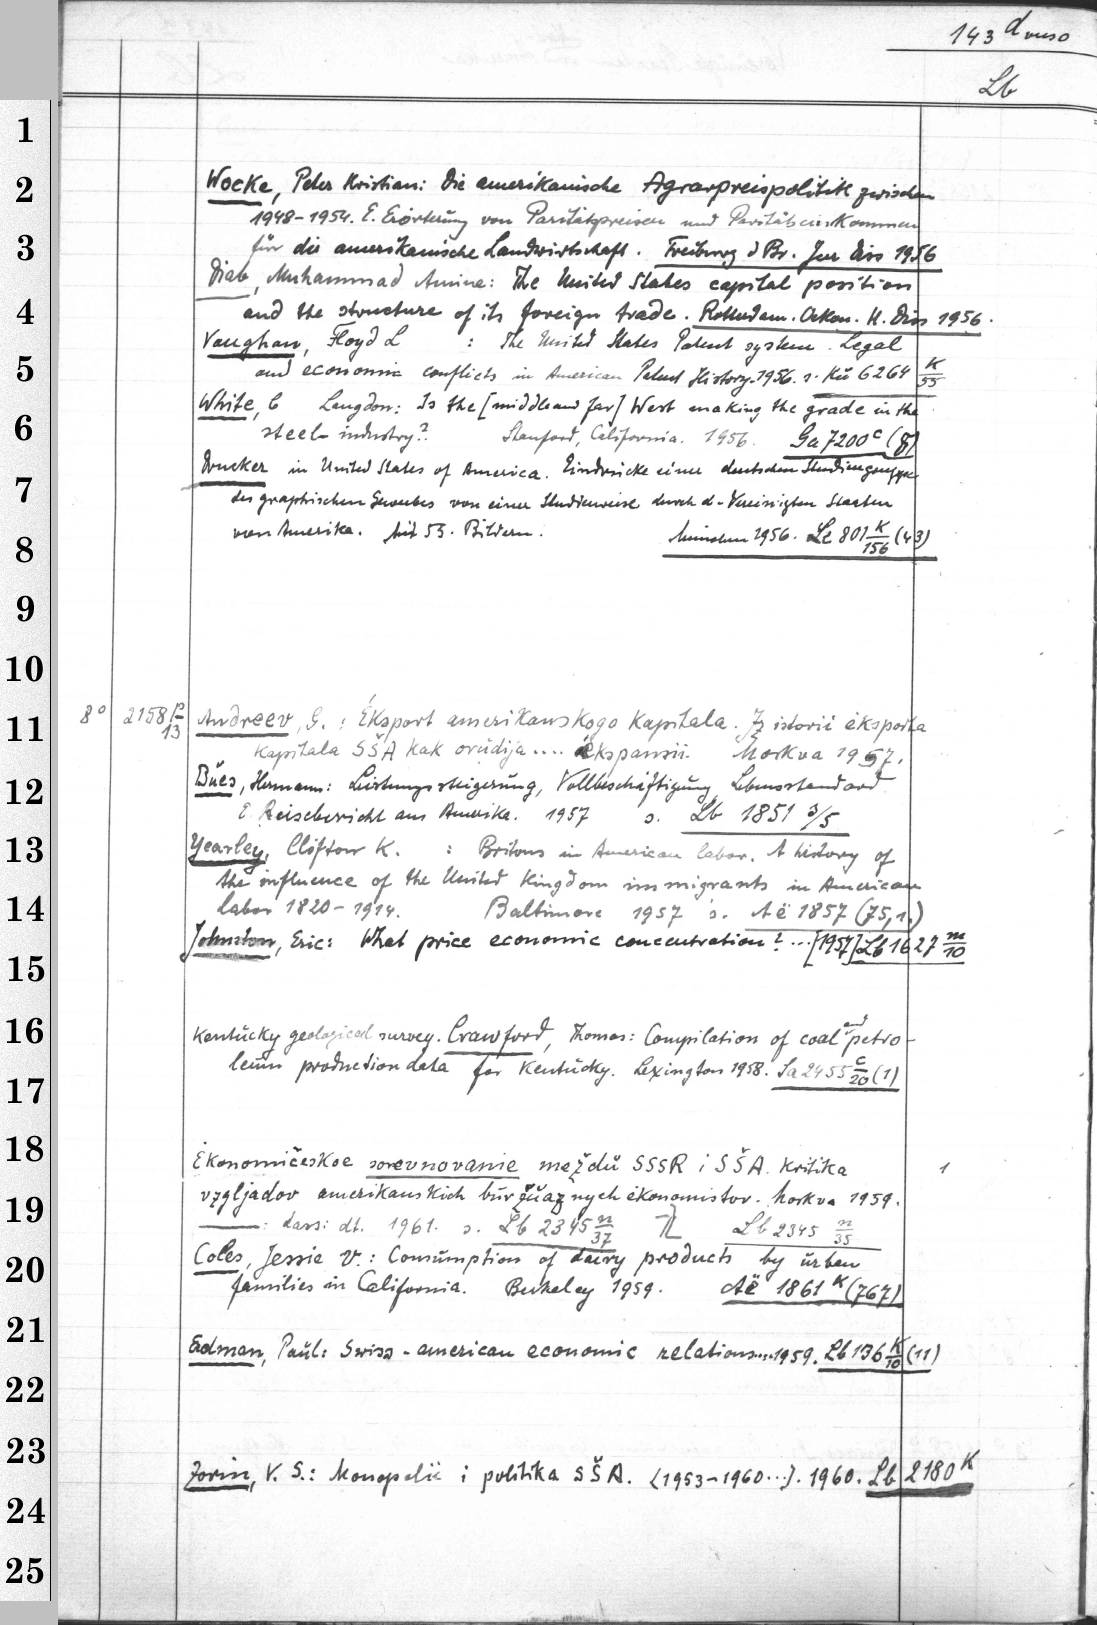 143 d verso
Lb
1
2
3
4
5
6
7
8
9
10
11
12
13
14
15
16
17
18
19
20
21
22
23
24
25
Wocke, Peter Kristian: Die amerikanische Agrarpreispolitik zwischen
1948-1954. E. Erörterung von Paritätspreisen und Paritätseinkommen
für die amerikanische Landwirtschaft. Freiburg i Br. Jur Diss 1956
Diab, Muhammad Amine: The United States capital position
and the structure of its foreign trade. Rotterdam. Oekon. H. Diss 1956.
Vaughan, Floyd L : The United States Patent system. Legal
and economic conflicts in American Patent History. 1956. s. Kü 6264 K/55
White, C Langdon: Is the [middle and far] West making the grade in the
steel industry? Stanford, California. 1956. Ga 7200 c (8)
Drucker in United States of America. Eindrücke einer deutschen Studiengruppe
des graphischen Gewerbes von einer Studienreise durch d. Vereinigten Staaten
von Amerika. Mit 53. Bildern. München 1956. Le 801 K/156 (43)
8° 2158 p/13 Andreev, G. : Ėksport amerikanskogo kapitala. Iz istorii ėksporta
kapitala SŠA kak orudija .... ėkspansii. Moskva 1957.
Bües, Hermann: Leistungssteigerung, Vollbeschäftigung, Lebensstandard
E Reisebericht aus Amerika. 1957 s. Lb 1851 3/5
Yearley, Clifton K. : Britons in American labor. A history of
the influence of the United Kingdom immigrants in American
labor 1820-1914. Baltimore 1957 s. Aë 1857 (75,1.)
Johnston, Eric: What price economic concentration? ... [1957] Lb 1627 m/10
Kentucky geological survey. Crawford, Thomas: Compilation of coal and petro-
leum production data for Kentucky. Lexington 1958. Sa 2455 c/20 (1)
Ėkonomičeskoe sorevnovanie meždu SSSR i SŠA. Kritika 1
vzgljadov amerikanskich buržuaznych ėkonomistov. Moskva 1959.
——: dass: dt. 1961. s. Lb 2345 n/37 Lb 2345 n/35
Coles, Jessie V.: Consumption of dairy products by urban
families in California. Berkeley 1959. Aë 1861 K (767)
Erdman, Paul: Swiss-american economic relations....1959. Lb 136 K/10 (11)
Zorin, V. S.: Monopolii i politika SŠA. (1953-1960...). 1960. Lb 2180 K